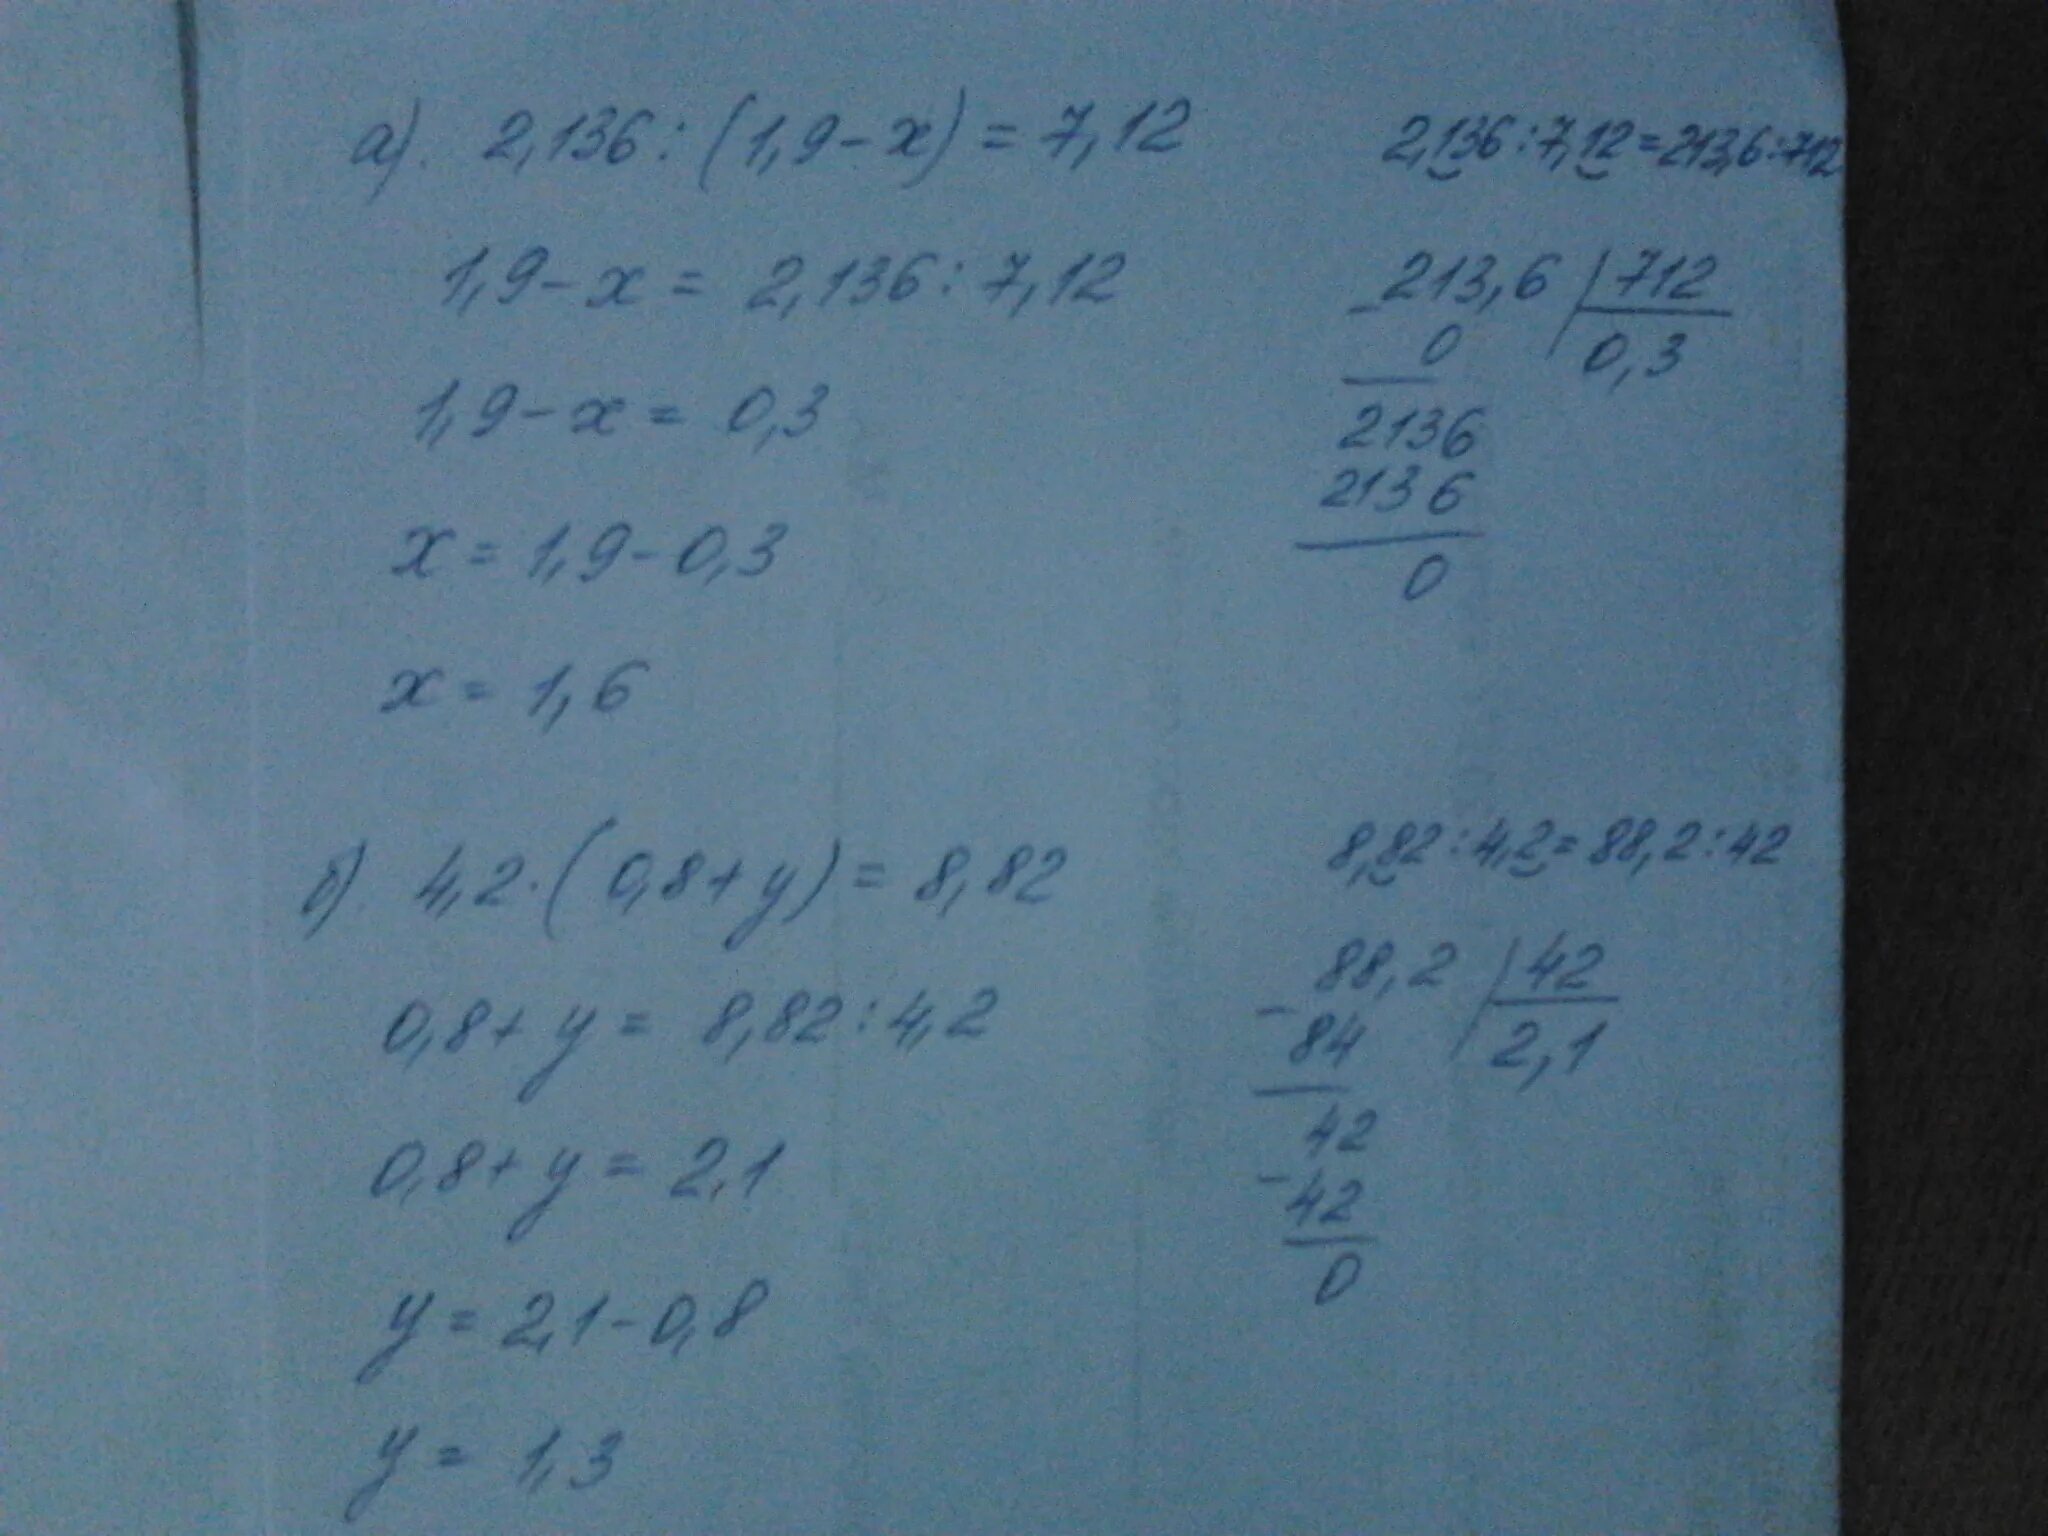 а). 2,136 : (1,9 - x) = 7,12
1,9 - x = 2,136 : 7,12
1,9 - x = 0,3
x = 1,9 - 0,3
x = 1,6
2,136 : 7,12 = 213,6 : 712
- 213,6 | 712
0 0,3
2136
2136
0
б). 4,2 · (0,8 + y) = 8,82
0,8 + y = 8,82 : 4,2
0,8 + y = 2,1
y = 2,1 - 0,8
y = 1,3
8,82 : 4,2 = 88,2 : 42
- 88,2 | 42
84 2,1
42
- 42
0